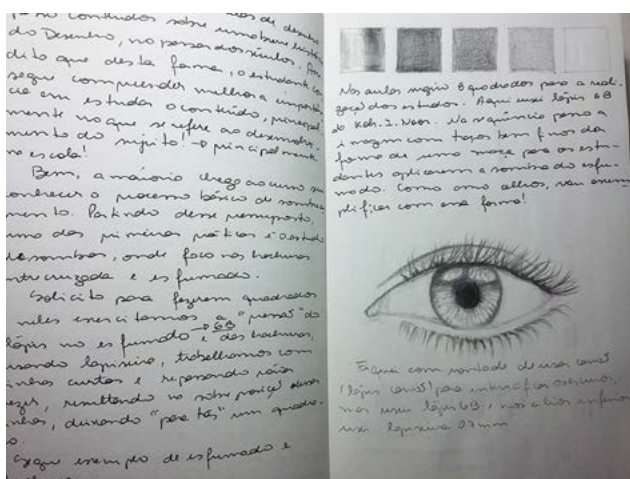 conteúdos sobre uma breve história
do Desenho, no passar dos séculos.
dito que desta forma, o estudante con
segue compreender melhor a importân
cia em estudar o conteúdo, principal
mente no que se refere ao desenvolvi
mento do sujeito! → principalmente
na escola!
Bem, a maioria chega ao curso sem
conhecer o processo básico de sombrea
mento. Partindo desse pressuposto,
uma das primeiras práticas é o estudo
de sombras, onde foco nas hachuras
entrecruzada e esfumado.
Solicito para fazerem quadrados
neles exercitamos a "pressão" do
lápis no esfumado → 6B e das hachuras,
usando lapiseira, trabalhamos com
linhas curtas e repassando várias
vezes, resultando na sobreposição dessas
linhas, deixando um quadra-
do.
Segue exemplo de esfumado e
Nas aulas sugiro 8 quadrados para a reali
zação dos estudos. Aqui usei lápis 6B
do Koh.I.Noor. Na sequência passo a
imagem com traços bem finos da
forma de uma maçã para os estu
dantes aplicarem a sombra do esfu
mado. Como amo olhos, vou exem
plificar com essa forma!
Fiquei com vontade de usar carvão
(lápis carvão) para intensificar
mas usei lápis 6B, nos cílios inferiores
usei lapiseira 07mm